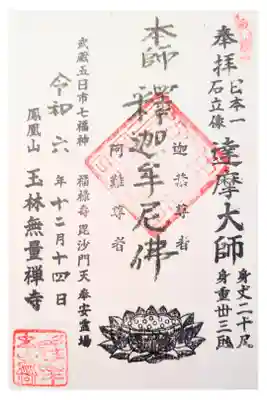 奉拝
日本一
石立像
達摩大師
身丈二十尺
身重丗三瓲
本師釋迦牟尼佛
迦葉尊者
阿難尊者
武蔵五日市七福神
福禄寿毘沙門天奉安霊場
令和六年十二月十四日
鳳凰山
玉林無量禅寺